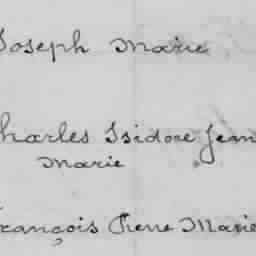 Joseph Marie
Charles Isidore Jean
Marie
François Pierre Marie